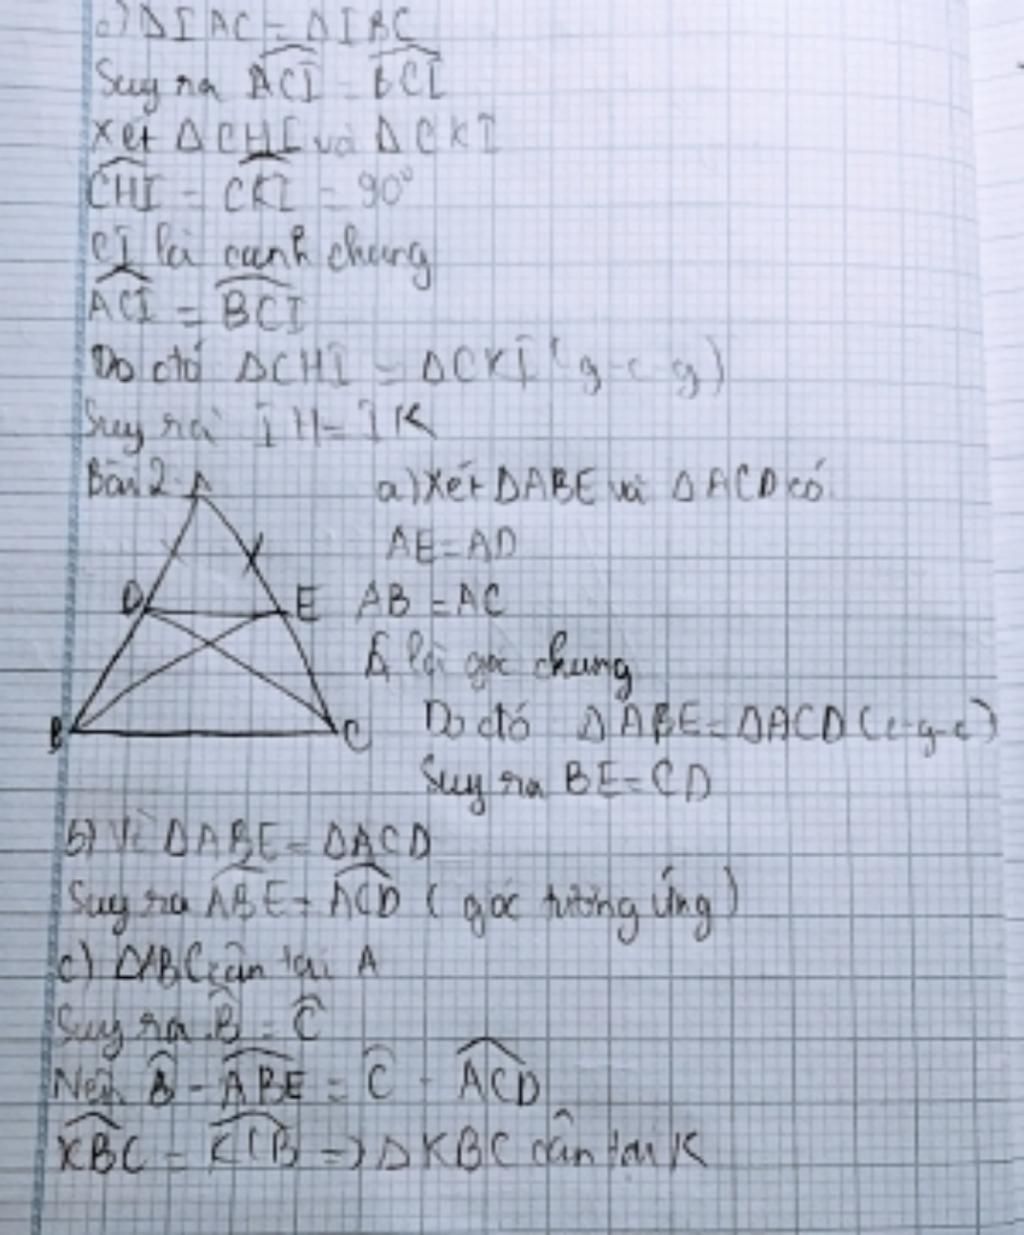 c) ΔIAC = ΔIBC
Suy ra ACI = BCI
Xét ΔCHI và ΔCKI
CHI = CKI = 90°
CI là cạnh chung
ACI = BCI
Do đó ΔCHI = ΔCKI (g-c-g)
Suy ra IH = IK
Bài 2
A
a) Xét ΔABE và ΔACD có
AE = AD
D
E
AB = AC
Â là góc chung
B
C
Do đó ΔABE = ΔACD (c-g-c)
Suy ra BE = CD
b) Vì ΔABE = ΔACD
Suy ra ABE = ACD (góc tương ứng)
c) ΔABC cân tại A
Suy ra B = C
Nên B - ABE = C - ACD
KBC = KCB => ΔKBC cân tại K